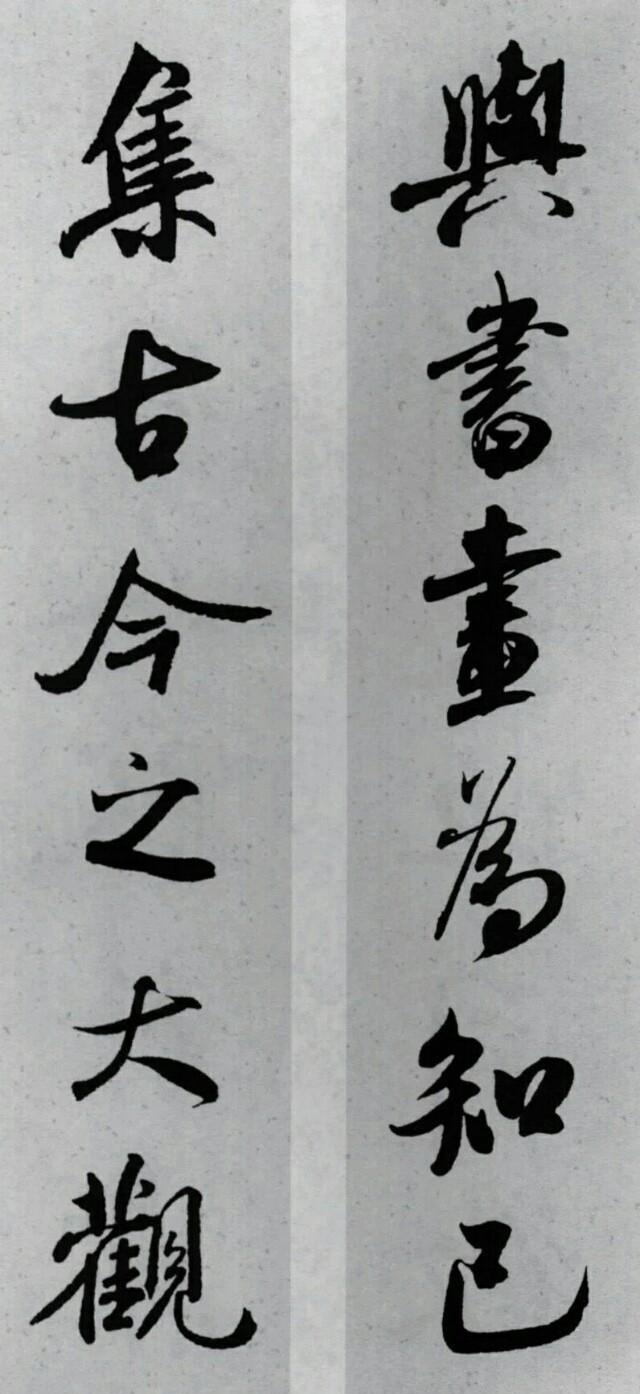 與書畫為知己
集古今之大觀